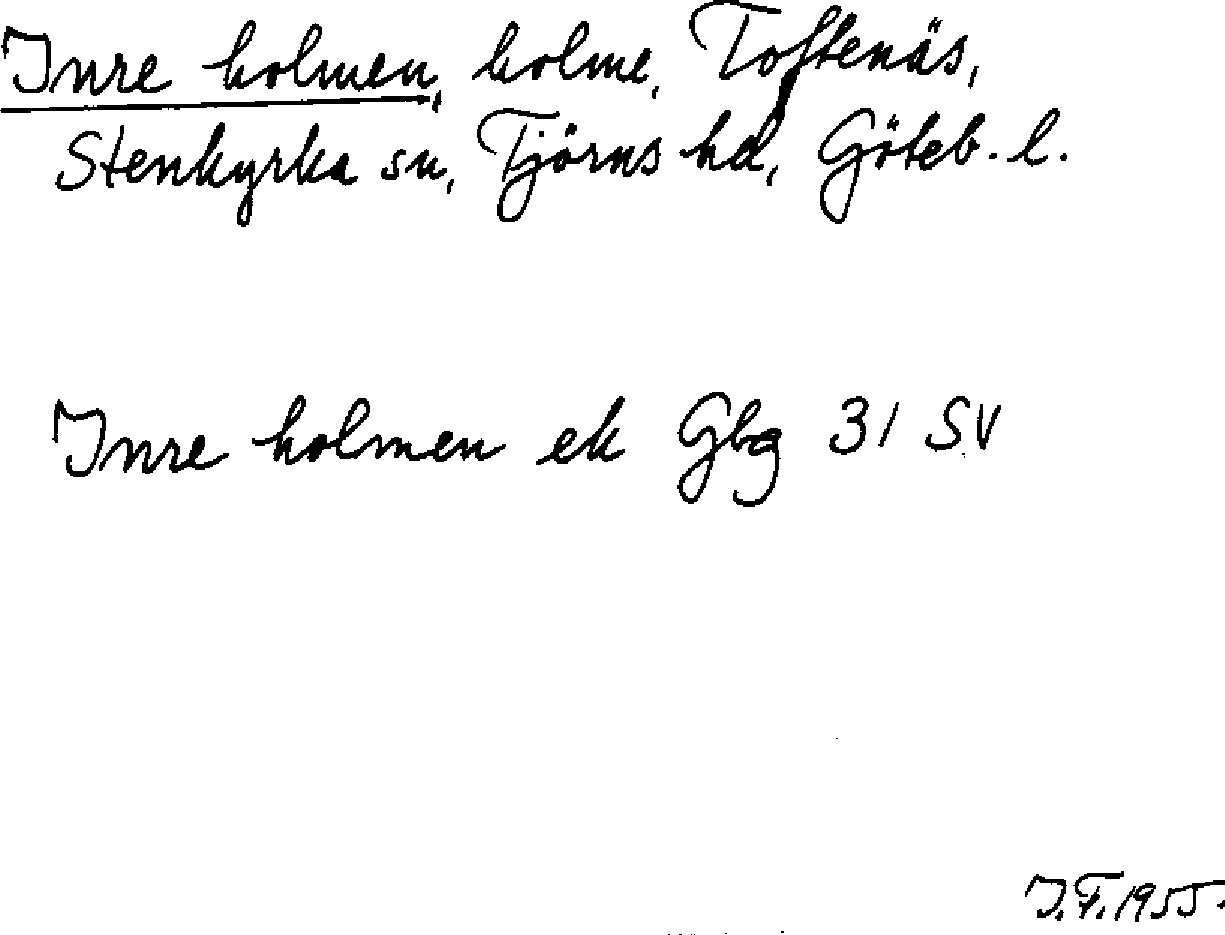 Inre holmen, holme, Toftenäs,
Stenkyrka sn, Tjörns hd, Göteb. l.
Inre holmen ek Gbg 31 SV
I.F. 1955.